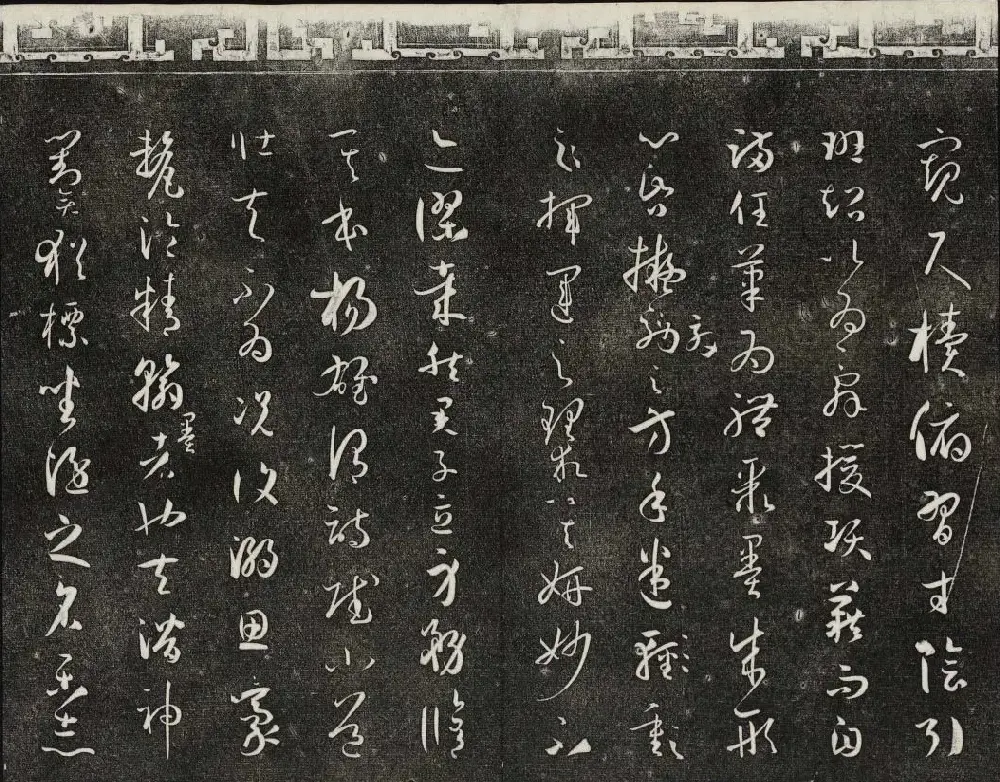 窺尺牘俯習寸陰引
班超以為辭援項籍而自
滿任筆為體聚墨成形
心昏擬效之方手迷
揮運之理求其妍妙不
亦謬哉然君子立身務脩
其本楊雄謂詩賦小道
壯夫不為況復溺思豪
氂淪精翰墨者也夫潛神
對奕猶標坐隱之名樂志